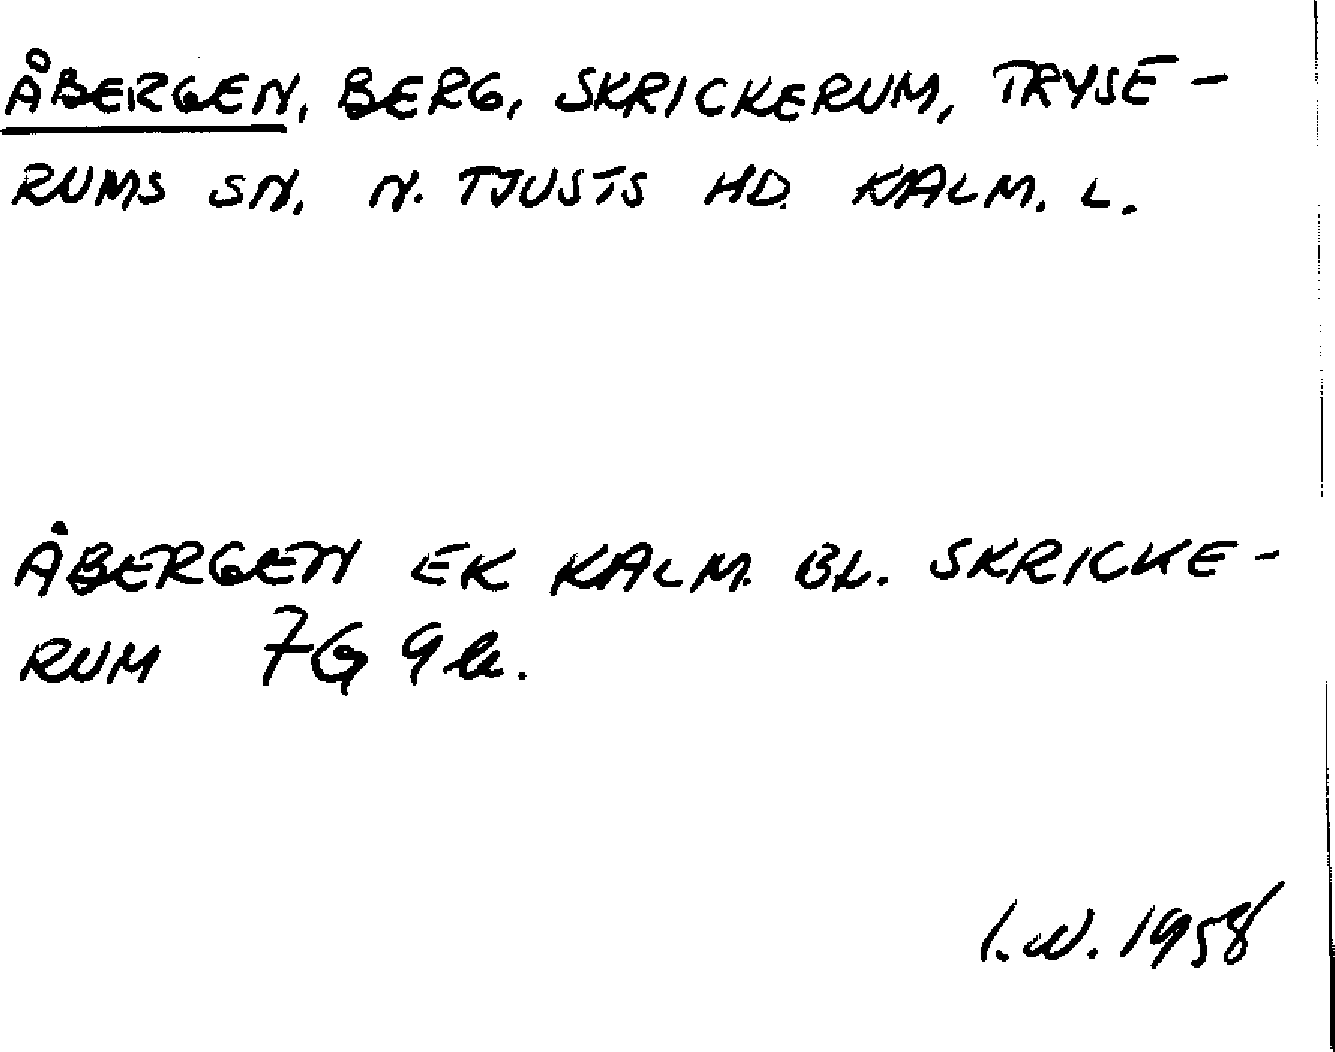 ÅBERGEN, BERG, SKRICKERUM, TRYSE-
RUMS SN. N. TJUSTS HD. KALM. L.
ÅBERGEN EK KALM. BL. SKRICKE-
RUM 7G 9b.
I.N. 1958